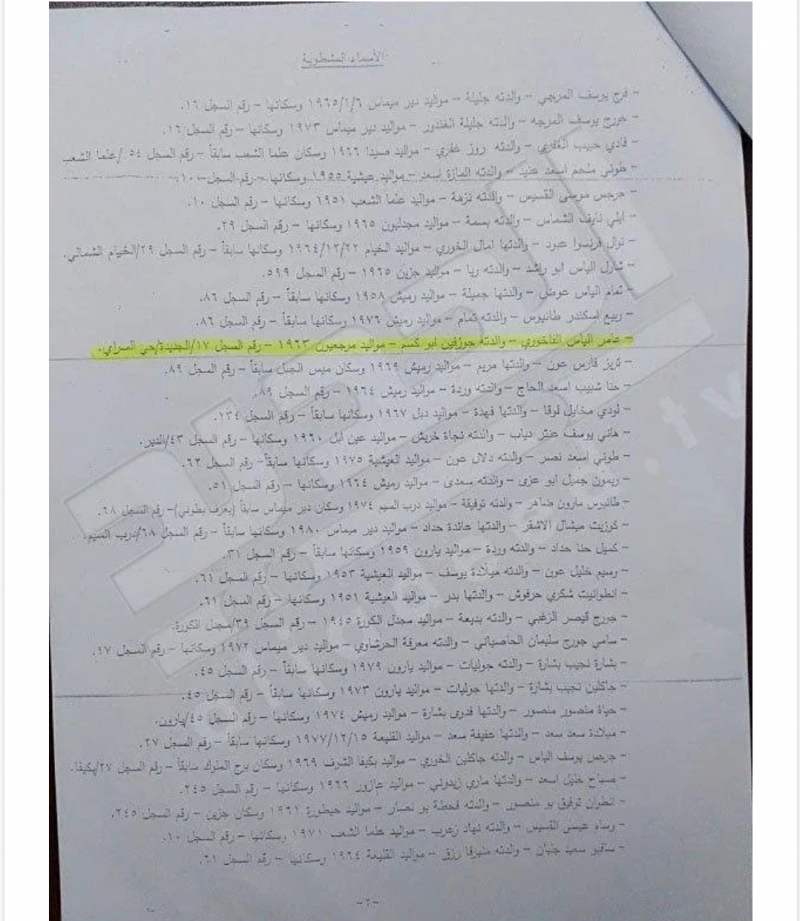 الأسماء المشطوبة
- فرج يوسف المرجي - والدته جليلة - مواليد دير ميماس ١٩٦٥/١/٦ وسكانها - رقم السجل ١٦.
- جورج يوسف المرجه - والدته جليلة الغندور - مواليد دير ميماس ١٩٧٣ وسكانها - رقم السجل ١٦.
- فادي حبيب الغفري - والدته روز غفري - مواليد صيدا ١٩٦٦ وسكان علما الشعب سابقاً - رقم السجل ٥٤/علما الشعب
- طوني ملحم اسعد عيد - والدته المازة اسعد - مواليد عيشية ١٩٥٥ وسكانها - رقم السجل ١٠.
- جرجس موسى القسيس - والدته نزهة - مواليد علما الشعب ١٩٥١ وسكانها - رقم السجل ١٠.
- ايلي نايف الشماس - والدته بسمة - مواليد مجدليون ١٩٦٥ - رقم السجل ٢٩.
- نوال فرنسوا عبود - والدتها امال الخوري - مواليد الخيام ١٩٦٤/١٢/٢٢ وسكانها سابقاً - رقم السجل ٢٩/الخيام الشمالي.
- شارل الياس ابو راشد - والدته ريا - مواليد جزين ١٩٦٥ - رقم السجل ٥٩٩.
- تمام الياس عوض - والدتها جميلة - مواليد رميش ١٩٥٨ وسكانها سابقاً - رقم السجل ٨٦.
- ربيع اسكندر طانيوس - والدته تمام - مواليد رميش ١٩٧٦ وسكانها سابقاً - رقم السجل ٨٦.
- عامر الياس الفاخوري - والدته جوزفين ابو كسم - مواليد مرجعيون ١٩٦٣ - رقم السجل ١٧/الجديدة/حي السراي.
- تريز فارس عون - والدتها مريم - مواليد رميش ١٩٦٩ وسكان ميس الجبل سابقاً - رقم السجل ٨٩.
- حنا شبيب اسعد الحاج - والدته وردة - مواليد رميش ١٩٦٤ - رقم السجل ٨٩.
- لودي مخايل لوقا - والدتها فهدة - مواليد دبل ١٩٦٧ وسكانها سابقاً - رقم السجل ١٣٤.
- هاني يوسف عنتر دياب - والدته نجاة خريش - مواليد عين ابل ١٩٦٠ وسكانها - رقم السجل ٤٣/الدير.
- طوني اسعد نصر - والدته دلال عون - مواليد العيشية ١٩٧٥ وسكانها سابقاً - رقم السجل ٦٢.
- ريمون جميل ابو عزى - والدته سعدى - مواليد رميش ١٩٦٤ وسكانها - رقم السجل ٥١.
- طانيوس مارون ضاهر - والدته توفيقة - مواليد درب السيم ١٩٧٤ وسكان دير ميماس سابقاً (يعرف بطوني) - رقم السجل ٦٨.
- كوزيت ميشال الاشقر - والدتها عائدة حداد - مواليد دير ميماس ١٩٨٠ وسكانها سابقاً - رقم السجل ٦٨/درب السيم.
- كميل حنا حداد - والدته وردة - مواليد يارون ١٩٥٩ وسكانها سابقاً - رقم السجل ٣١.
- وسيم خليل عون - والدته ميلادة يوسف - مواليد العيشية ١٩٥٣ وسكانها - رقم السجل ٦١.
- انطوانيت شكري حرفوش - والدتها بدر - مواليد العيشية ١٩٥١ وسكانها - رقم السجل ٦١.
- جورج قيصر الزغبي - والدته بديعة - مواليد مجدل الكورة ١٩٤٥ - رقم السجل ٣٩/مجدل الكورة.
- سامي جورج سليمان الحاصباني - والدته معرفة الحرشاوي - مواليد دير ميماس ١٩٧٢ وسكانها - رقم السجل ٤٧.
- بشارة نجيب بشارة - والدته جوليات - مواليد يارون ١٩٧٩ وسكانها سابقاً - رقم السجل ٤٥.
- جاكلين نجيب بشارة - والدتها جوليات - مواليد يارون ١٩٧٣ وسكانها سابقاً - رقم السجل ٤٥.
- حياة منصور منصور - والدتها فدوى بشارة - مواليد رميش ١٩٧٤ وسكانها - رقم السجل ٤٥/يارون.
- ميلادة سعد سعد - والدتها عفيفة سعد - مواليد القليعة ١٩٧٧/١٢/١٥ وسكانها سابقاً - رقم السجل ٢٧.
- جرجس يوسف الياس - والدته جاكلين الخوري - مواليد بكيفا الشوف ١٩٦٩ وسكان برج الملوك سابقاً - رقم السجل ٢٧/بكيفا.
- صباح خليل اسعد - والدتها ماري زيدولي - مواليد عازور ١٩٦٦ وسكانها - رقم السجل ٢٤٥.
- انطوان توفيق بو منصور - والدته قحطة بو نصار - مواليد حيطورة ١٩٦١ وسكان جزين - رقم السجل ٢٤٥.
- وسام عيسى القسيس - والدته نهاد زعرب - مواليد علما الشعب ١٩٧١ وسكانها - رقم السجل ١٠.
- سافير سعيد جنيان - والدته منيرفا رزق - مواليد القليعة ١٩٦٤ وسكانها - رقم السجل ٦١.
-٦-